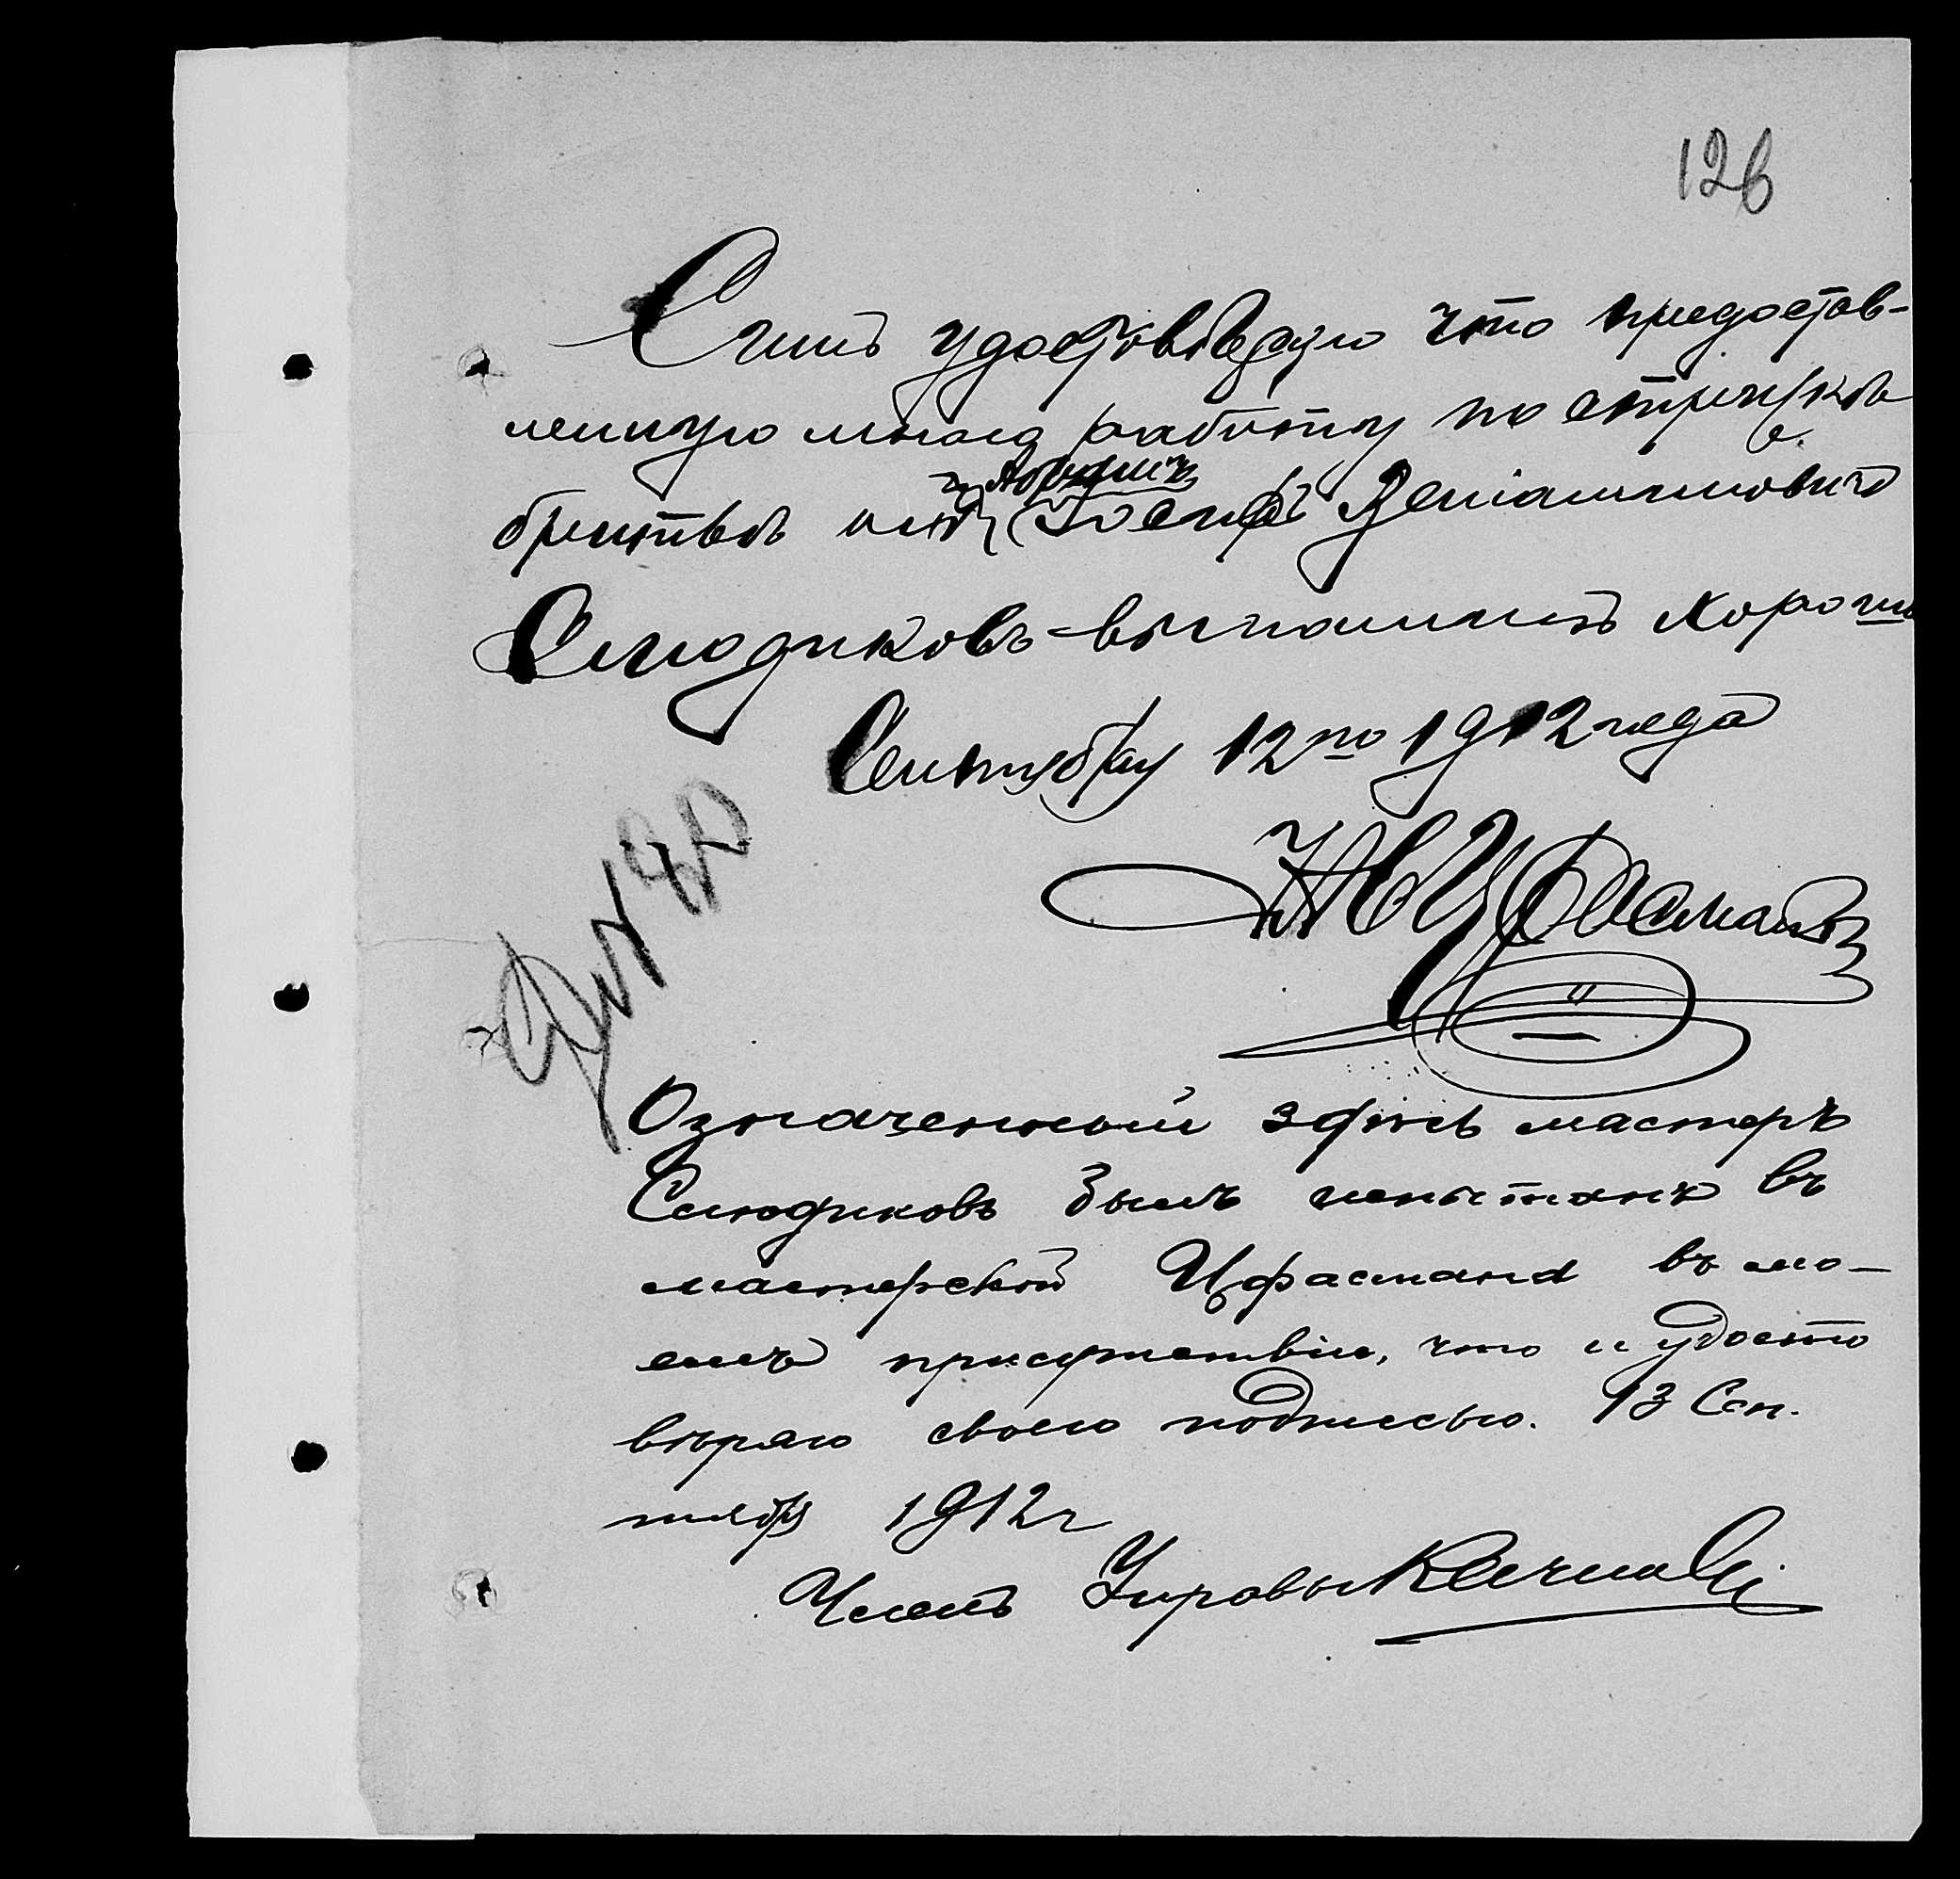 126
Симъ удостовѣряю что предостав-
ленную мною работу по стрижкѣ
бритьѣ Іосифъ Веніаминовичъ
Слюдиковъ выполнилъ хорошо
Сентября 12го 1912 года
Цфасманъ
Означенный здѣсь мастеръ
Слюдиковъ былъ испытанъ въ
мастерской Цфасмана въ мо-
емъ присутствіи, что и удосто
вѣряю своею подписью. 13 Сен.
тября 1912г
Членъ Управы